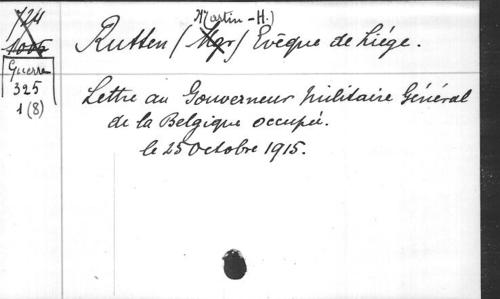 724
1006
Guerre
325
1 (8)
Martin-H.)
Rutten (Mgr) Evêque de Liége.
Lettre au Gouverneur Militaire Général
de la Belgique occupée.
le 25 Octobre 1915.